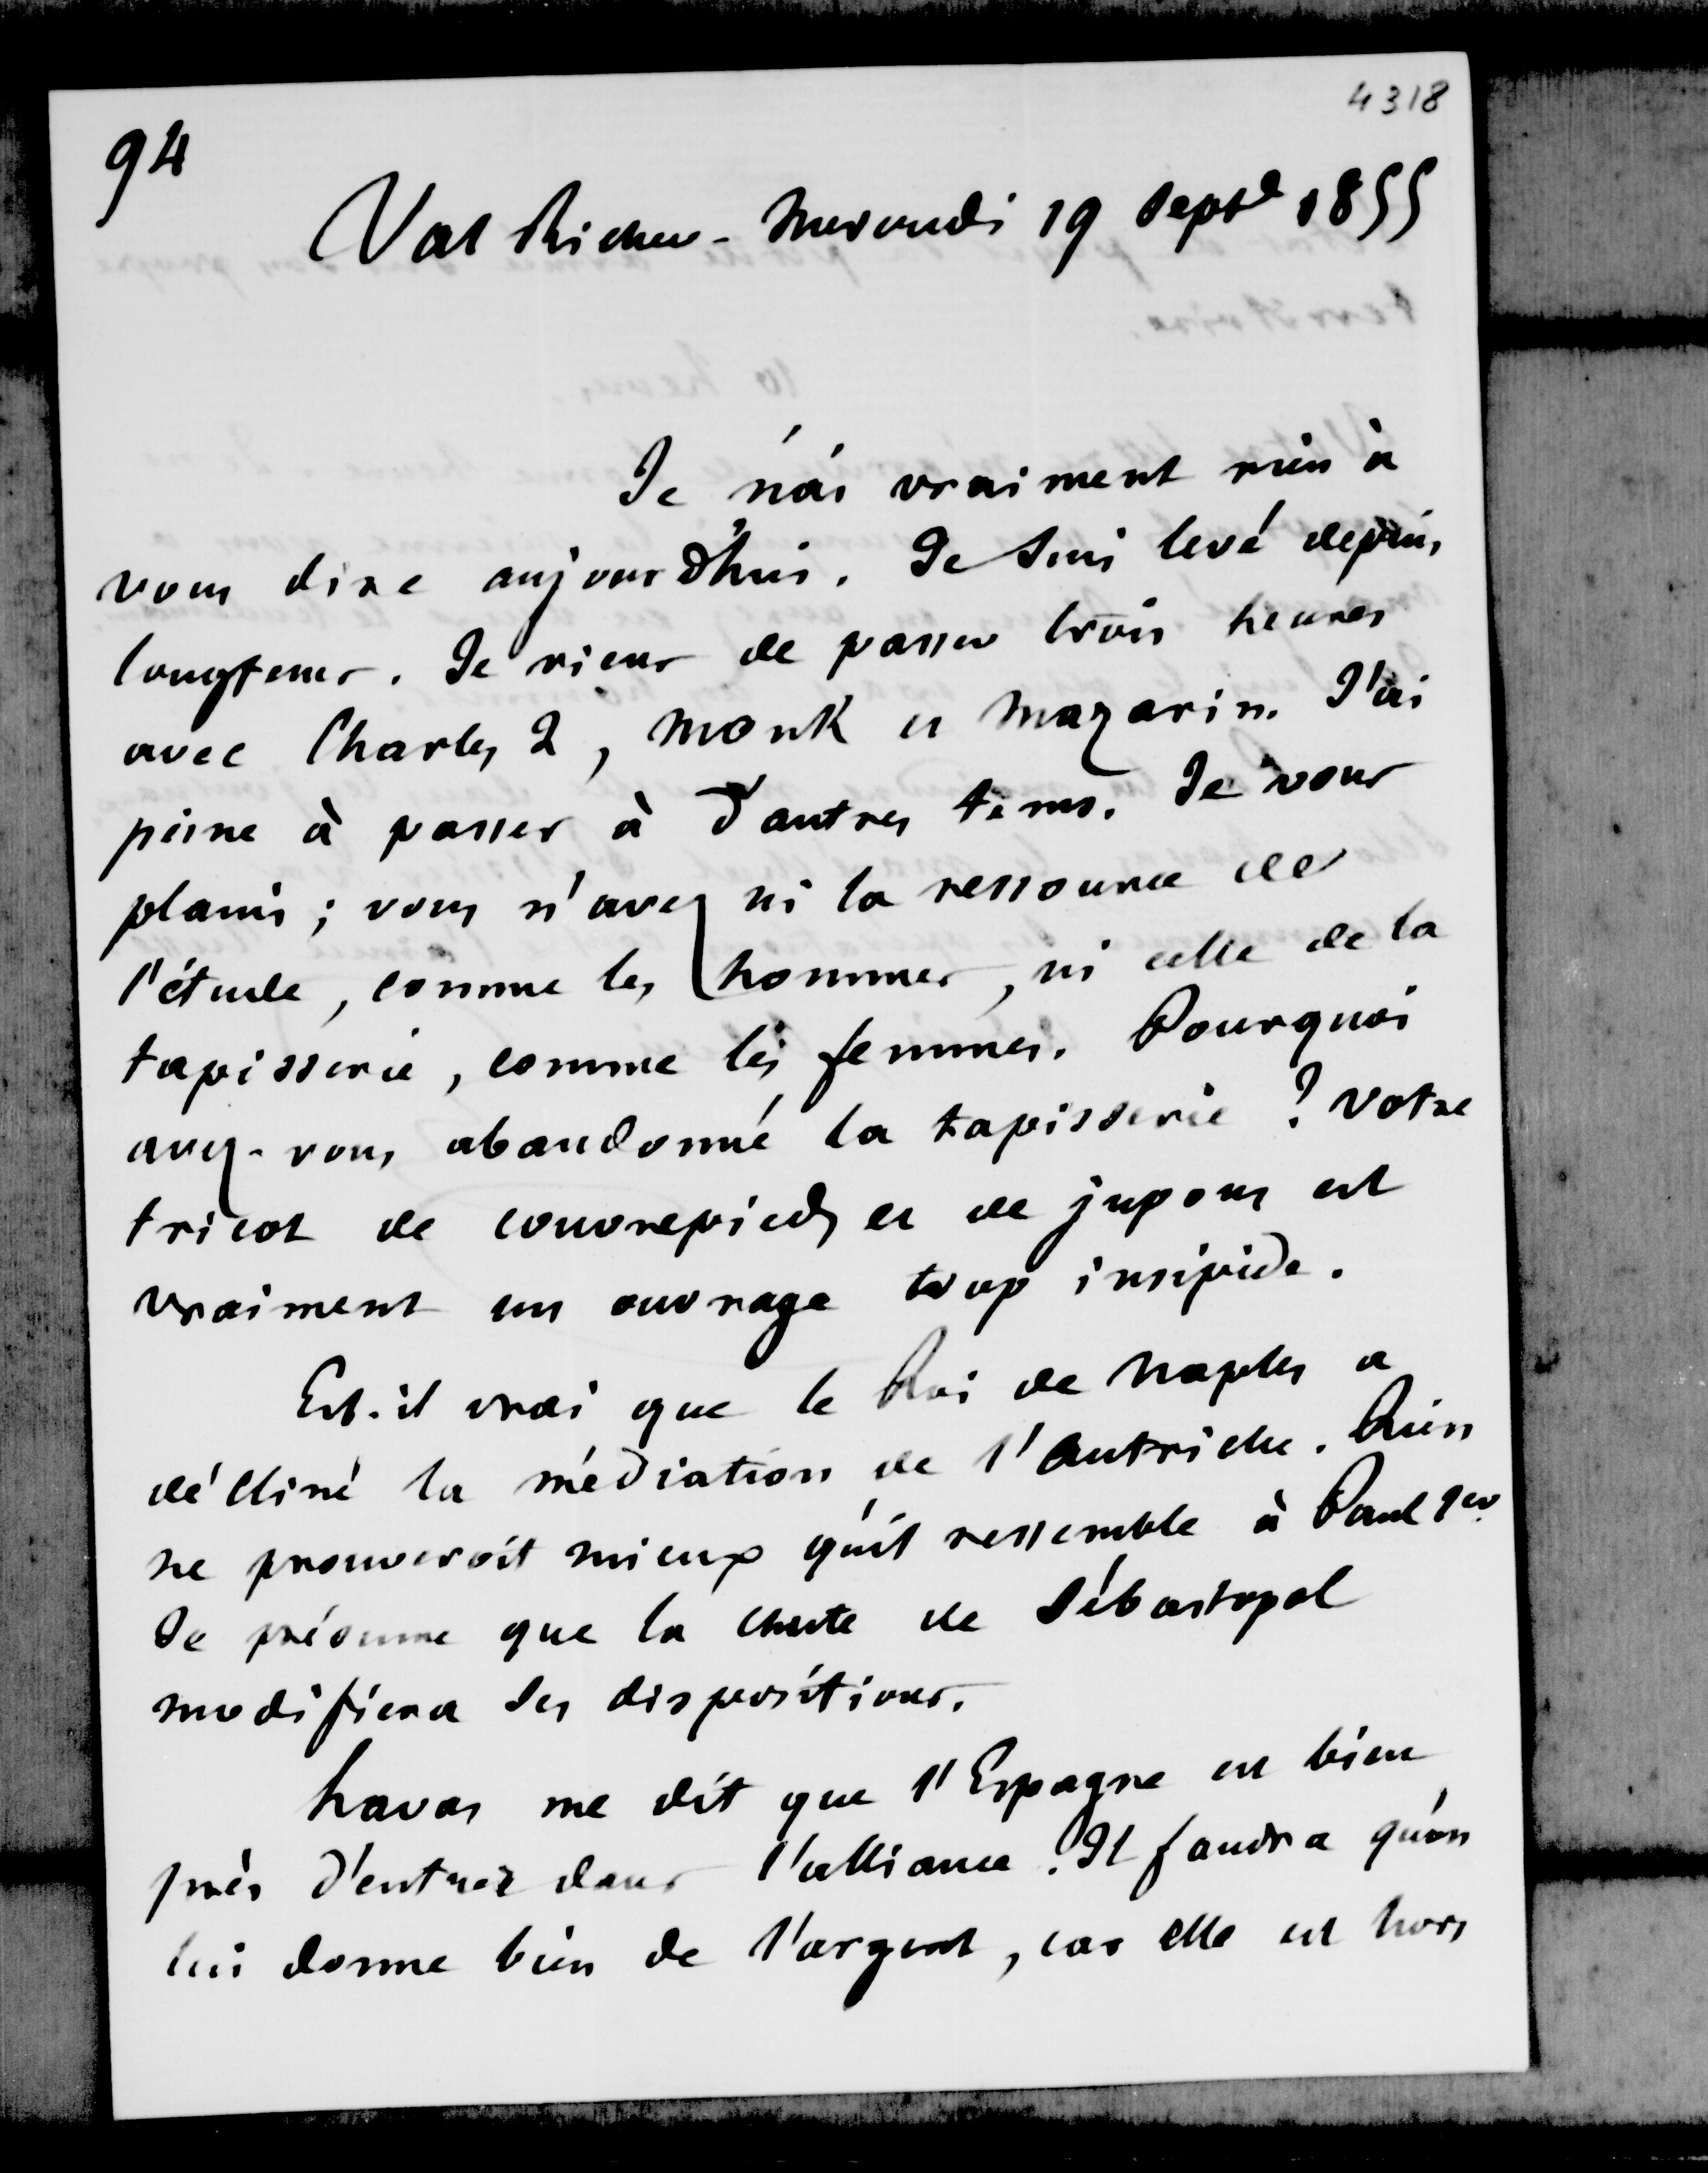 4318
94
Val Richer - Mercredi 19 Septe 1855
Je n'ai vraiment rien à
vous dire aujourd'hui. Je suis levé depuis
longtems. Je viens de passer trois heures
avec Charles 2, Monk et Mazarin. J'ai
peine à passer à d'autres tems. Je vous
plains ; vous n'avez ni la ressource de
l'étude, comme les hommes, ni celle de la
tapisserie, comme les femmes. Pourquoi
avez-vous abandonné la tapisserie ? Votre
tricot de couvrepieds et de jupons est
vraiment un ouvrage trop insipide.
Est-il vrai que le Roi de Naples a
décliné la médiation de l'Autriche. Rien
ne prouveroit mieux qu'il ressemble à Paul 1er.
Je présume que la chute de Sébastopol
modifiera ses dispositions.
Havas me dit que l'Espagne est bien
près d'entrer dans l'alliance. Il faudra qu'on
lui donne bien de l'argent, car elle est hors